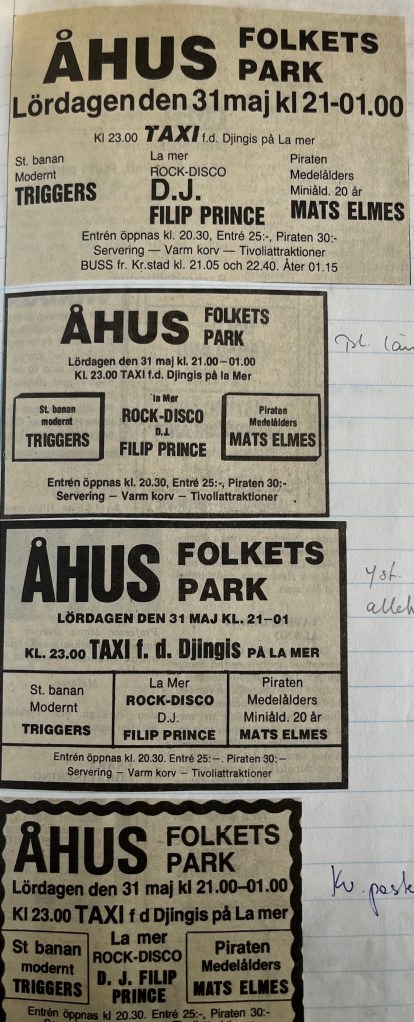 ÅHUS FOLKETS PARK
Lördagen den 31 maj kl 21-01.00
Kl 23.00 TAXI f.d. Djingis på La mer
St. banan
Modernt
TRIGGERS
La mer
ROCK-DISCO
D.J.
FILIP PRINCE
Piraten
Medelålders
Miniåld. 20 år
MATS ELMES
Entrén öppnas kl. 20.30, Entré 25:-, Piraten 30:-
Servering — Varm korv — Tivoliattraktioner
BUSS fr. Kr.stad kl. 21.05 och 22.40. Åter 01.15
ÅHUS FOLKETS PARK
Lördagen den 31 maj kl. 21.00–01.00
Kl. 23.00 TAXI f.d. Djingis på la Mer
St. banan
modernt
TRIGGERS
la Mer
ROCK-DISCO
D.J.
FILIP PRINCE
Piraten
Medelålders
MATS ELMES
Entrén öppnas kl. 20.30, Entré 25:-, Piraten 30:-
Servering — Varm korv — Tivoliattraktioner
ÅHUS FOLKETS PARK
LÖRDAGEN DEN 31 MAJ KL. 21–01
KL. 23.00 TAXI f. d. Djingis PÅ LA MER
St. banan
Modernt
TRIGGERS
La Mer
ROCK-DISCO
D.J.
FILIP PRINCE
Piraten
Medelålders
Miniåld. 20 år
MATS ELMES
Entrén öppnas kl. 20.30. Entré 25:–. Piraten 30:–
Servering – Varm korv – Tivoliattraktioner
Yst.
alleh
ÅHUS FOLKETS PARK
Lördagen den 31 maj kl 21.00–01.00
Kl 23.00 TAXI f d Djingis på La mer
St banan
modernt
TRIGGERS
La mer
ROCK-DISCO
D. J. FILIP
PRINCE
Piraten
Medelålders
MATS ELMES
Kv. post
Entrén öppnas kl 20.30. Entré 25:-, Piraten 30:-